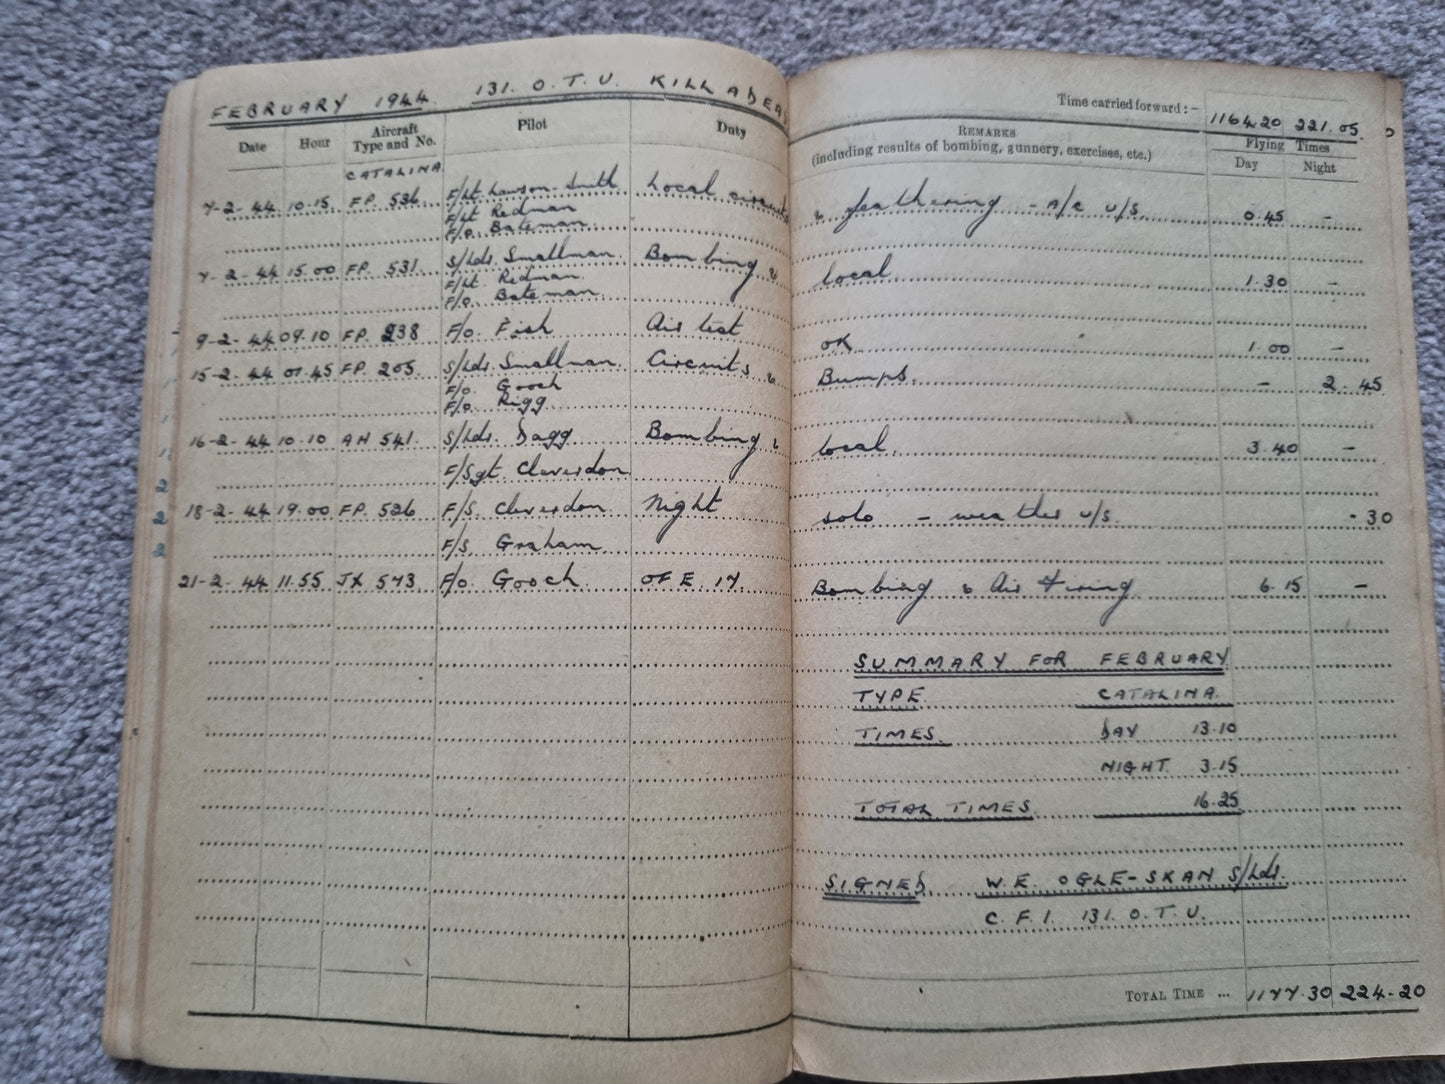 FEBRUARY 1944. 131. O.T.U. KILLADEAS
Time carried forward:- 1164.20 221.05.
Date Hour Aircraft Type and No. Pilot Duty REMARKS (including results of bombing, gunnery, exercises, etc.) Flying Times Day Night
CATALINA.
7-2-44 10.15. FP. 536 F/Lt. Lawson-Smith Local circuits & feathering - A/C U/S. 0.45 -
F/Lt Redman
F/O. Bateman.
7-2-44 15.00 FP. 531. S/Ldr. Smallman. Bombing & local. 1.30 -
F/Lt Redman.
F/O. Bateman
9-2-44 09.10 FP. 238 F/O. Fish Air test OK. 1.00 -
15-2-44 01.45 FP. 205. S/Ldr. Smallman. Circuits & Bumps. - 2.45
F/O. Gooch
F/O. Rigg
16-2-44 10.10 AH 541. S/Ldr. Dagg Bombing & local. 3.40 -
F/Sgt. Cleverdon
18-2-44 19.00 FP. 526 F/S. Cleverdon. Night solo - weather U/S. .30
F/S. Graham.
21-2-44 11.55 JX 573. F/O. Gooch. OFE. 17. Bombing & Air Firing 6.15 -
SUMMARY FOR FEBRUARY
TYPE CATALINA.
TIMES. DAY 13.10
NIGHT. 3.15
TOTAL TIMES. 16.25
SIGNED. W.E. OGLE-SKAN S/Ldr.
C.F.I. 131. O.T.U.
TOTAL TIME ... 1177.30 224-20